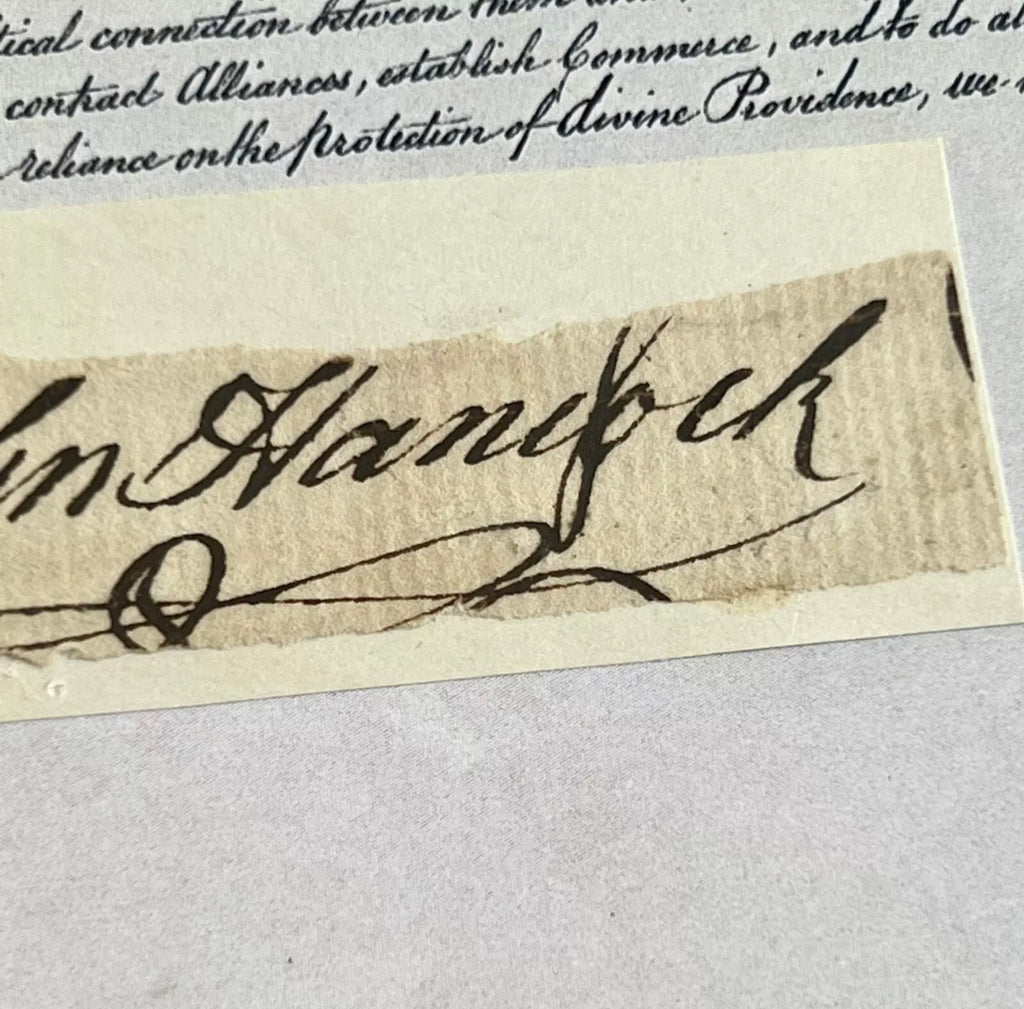 tical connection between them and
contract Alliances, establish Commerce, and to do al
reliance on the protection of divine Providence, we
hn Hancock